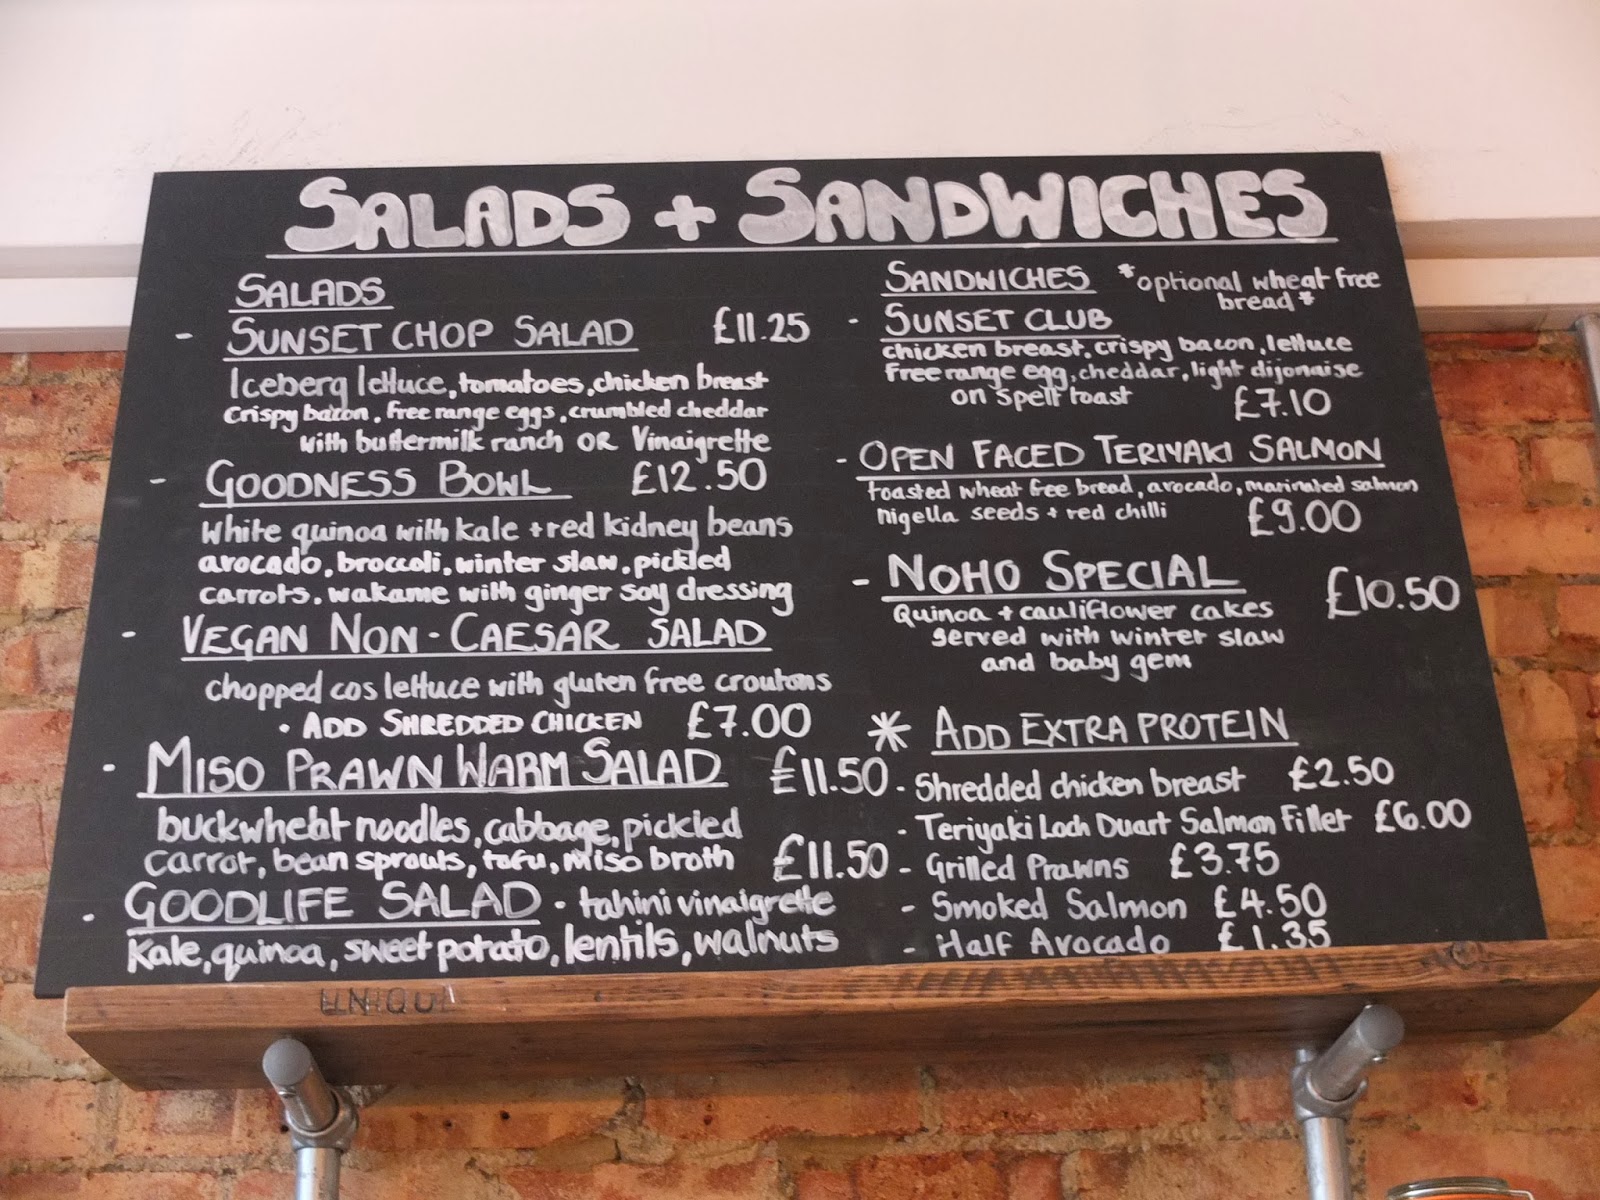 SALADS + SANDWICHES
SALADS
- SUNSET CHOP SALAD £11.25
Iceberg lettuce, tomatoes, chicken breast
crispy bacon, free range eggs, crumbled cheddar
with buttermilk ranch OR Vinaigrette
- GOODNESS BOWL £12.50
White quinoa with kale + red kidney beans
avocado, broccoli, winter slaw, pickled
carrots, wakame with ginger soy dressing
- VEGAN NON-CAESAR SALAD
chopped cos lettuce with gluten free croutons
• ADD SHREDDED CHICKEN £7.00
- MISO PRAWN WARM SALAD £11.50
buckwheat noodles, cabbage, pickled
carrot, bean sprouts, tofu, miso broth £11.50
- GOODLIFE SALAD - tahini vinaigrette
Kale, quinoa, sweet potato, lentils, walnuts
SANDWICHES *optional wheat free
bread*
- SUNSET CLUB
chicken breast, crispy bacon, lettuce
free range egg, cheddar, light dijonaise
on spelt toast £7.10
- OPEN FACED TERIYAKI SALMON
toasted wheat free bread, avocado, marinated salmon
nigella seeds + red chilli £9.00
- NOHO SPECIAL £10.50
Quinoa + cauliflower cakes
served with winter slaw
and baby gem
* ADD EXTRA PROTEIN
- Shredded chicken breast £2.50
- Teriyaki Loch Duart Salmon Fillet £6.00
- Grilled Prawns £3.75
- Smoked Salmon £4.50
- Half Avocado £1.35
UNIQUE